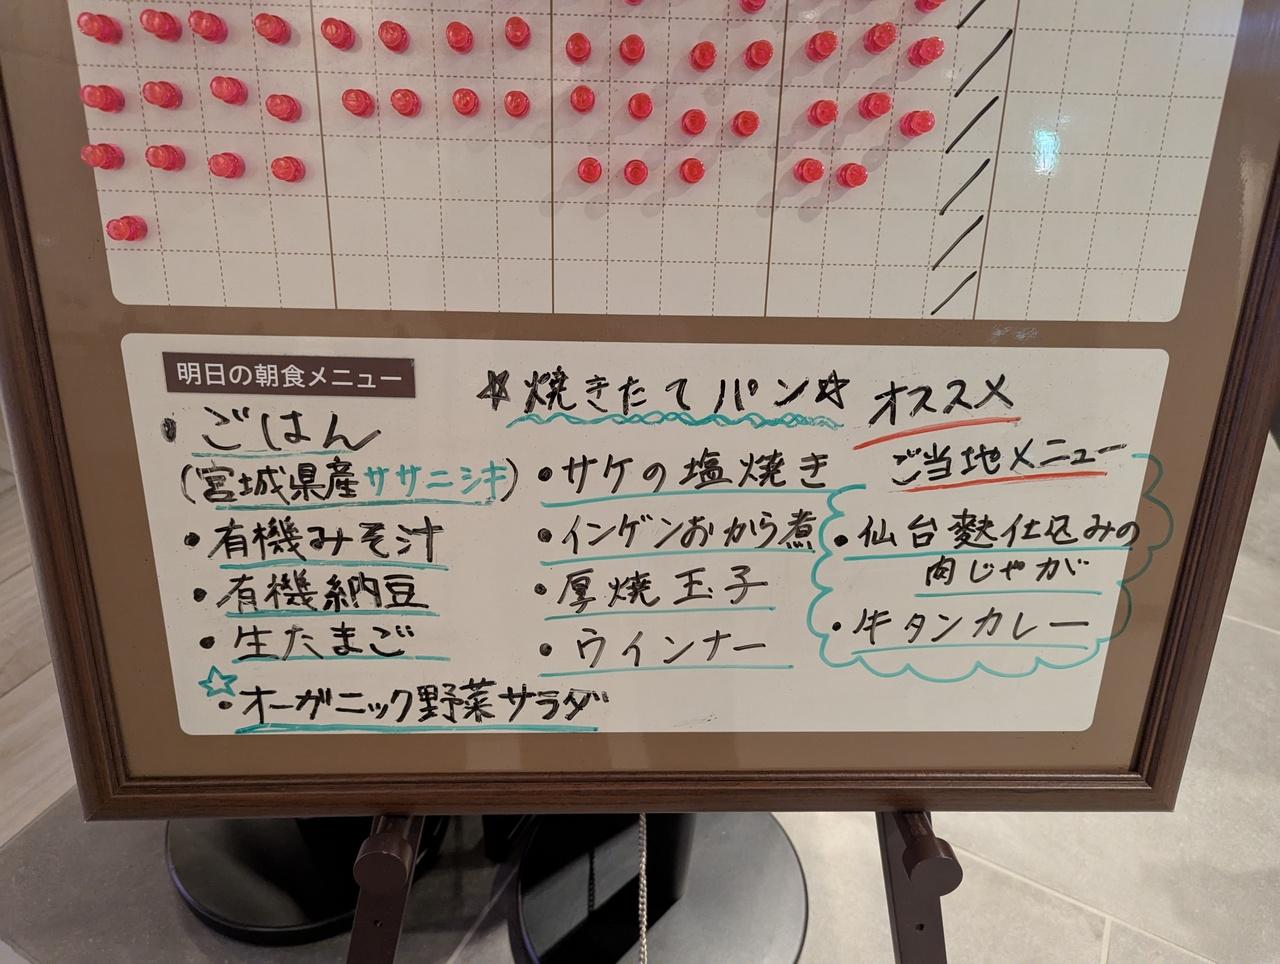 明日の朝食メニュー
・ごはん
(宮城県産ササニシキ)
・有機みそ汁
・有機納豆
・生たまご
☆・オーガニック野菜サラダ
☆焼きたてパン☆
・サケの塩焼き
・インゲンおから煮
・厚焼玉子
・ウインナー
オススメ
ご当地メニュー
・仙台麩仕込みの
肉じゃが
・牛タンカレー